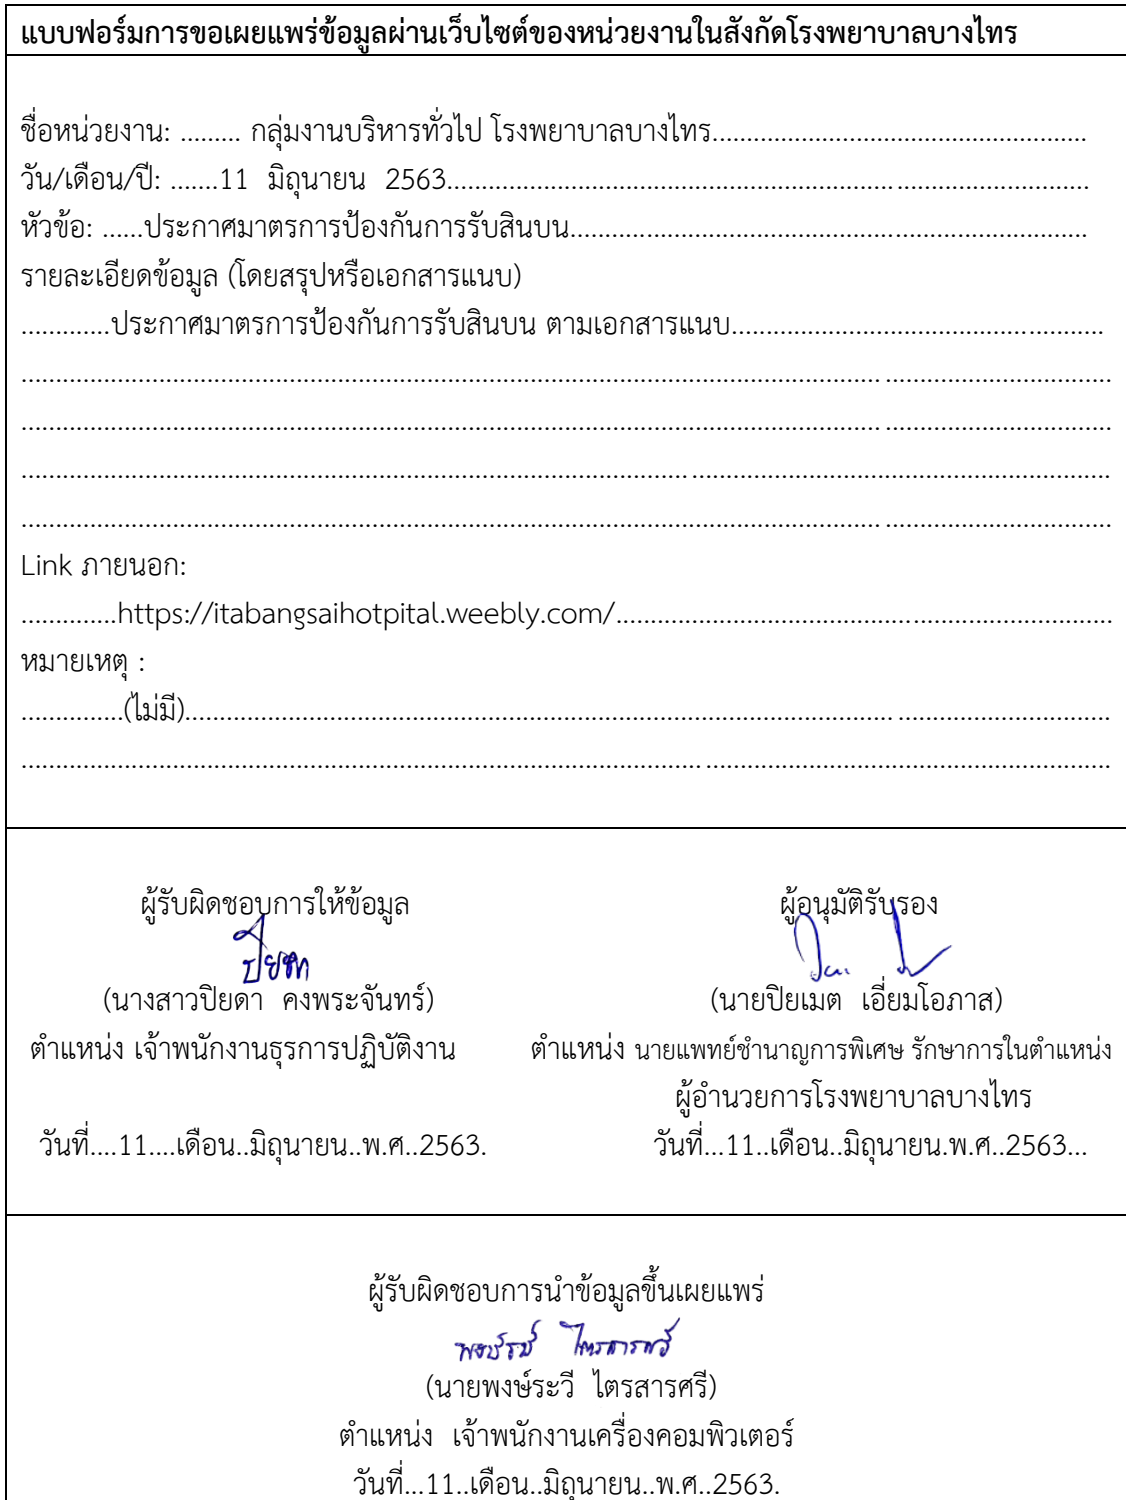 แบบฟอร์มการขอเผยแพร่ข้อมูลผ่านเว็บไซต์ของหน่วยงานในสังกัดโรงพยาบาลบางไทร
ชื่อหน่วยงาน: ......... กลุ่มงานบริหารทั่วไป โรงพยาบาลบางไทร......................................................
วัน/เดือน/ปี: .......11 มิถุนายน 2563..............................................................................................
หัวข้อ: ......ประกาศมาตรการป้องกันการรับสินบน...........................................................................
รายละเอียดข้อมูล (โดยสรุปหรือเอกสารแนบ)
.............ประกาศมาตรการป้องกันการรับสินบน ตามเอกสารแนบ......................................................
............................................................................................................................. .................................
............................................................................................................................. .................................
................................................................................................. .............................................................
............................................................................................................................. .................................
Link ภายนอก:
..............https://itabangsaihotpital.weebly.com/........................................................................
หมายเหตุ :
...............(ไม่มี)....................................................................................................... ...............................
................................................................................................... ...........................................................
ผู้รับผิดชอบการให้ข้อมูล ผู้อนุมัติรับรอง
ปิยดา
(นางสาวปิยดา คงพระจันทร์) (นายปิยเมต เอี่ยมโอภาส)
ตำแหน่ง เจ้าพนักงานธุรการปฏิบัติงาน ตำแหน่ง นายแพทย์ชำนาญการพิเศษ รักษาการในตำแหน่ง
ผู้อำนวยการโรงพยาบาลบางไทร
วันที่....11....เดือน..มิถุนายน..พ.ศ..2563. วันที่...11..เดือน..มิถุนายน.พ.ศ..2563...
ผู้รับผิดชอบการนำข้อมูลขึ้นเผยแพร่
พงษ์ระวี ไตรสารศรี
(นายพงษ์ระวี ไตรสารศรี)
ตำแหน่ง เจ้าพนักงานเครื่องคอมพิวเตอร์
วันที่...11..เดือน..มิถุนายน..พ.ศ..2563.